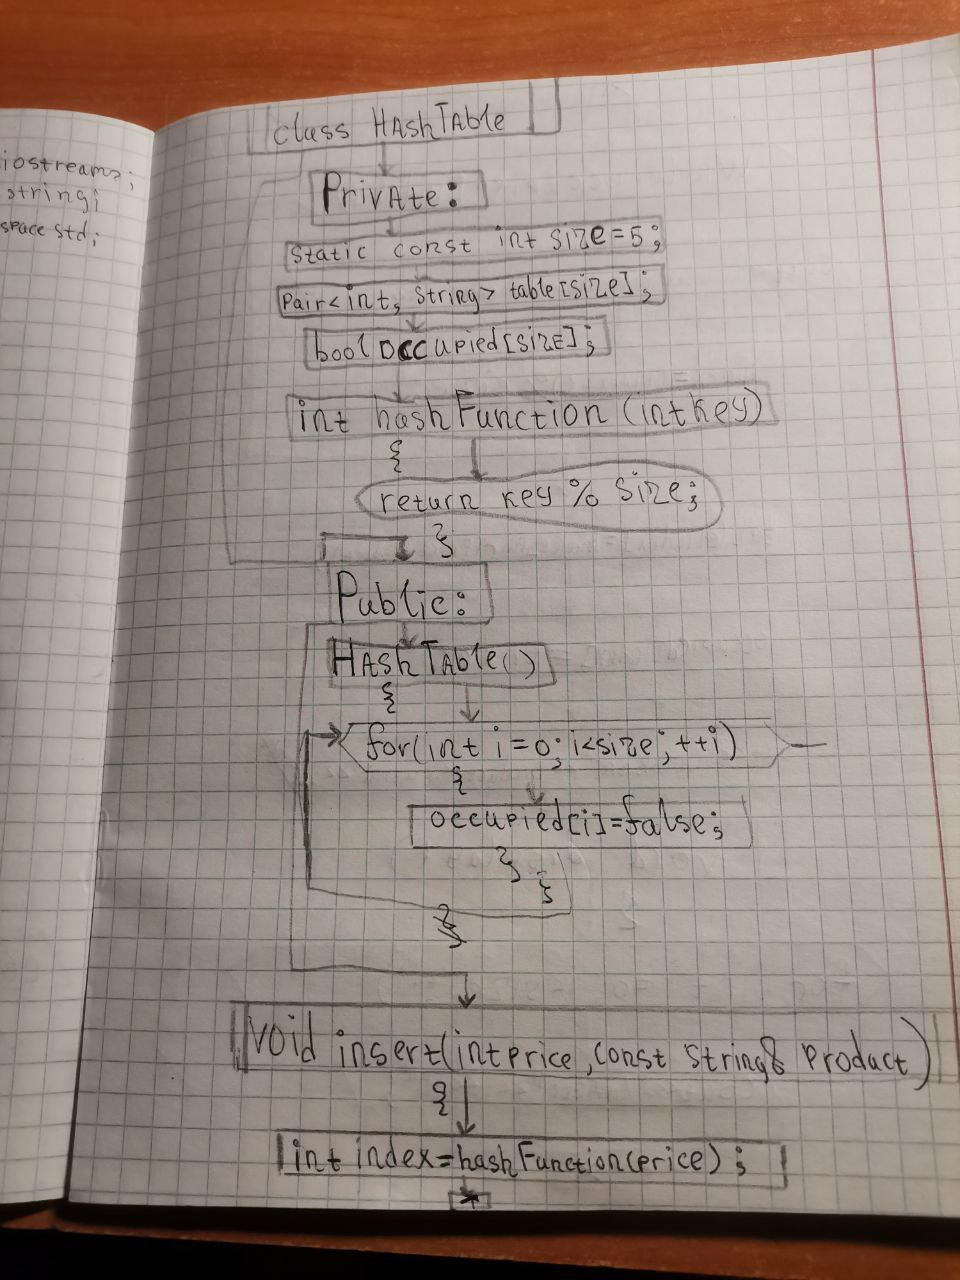 iostream>;
string;
space std;
class HAshTAble
PrivAte:
static const int size=5;
Pair<int, String> table[size];
bool occupied[size];
int hashFunction(int key)
{
return key % size;
}
Public:
HAshTAble()
{
for(int i=0; i<size; ++i)
{
occupied[i]=false;
}
}
void insert(int price, const String& product)
{
int index=hashFunction(price);
*